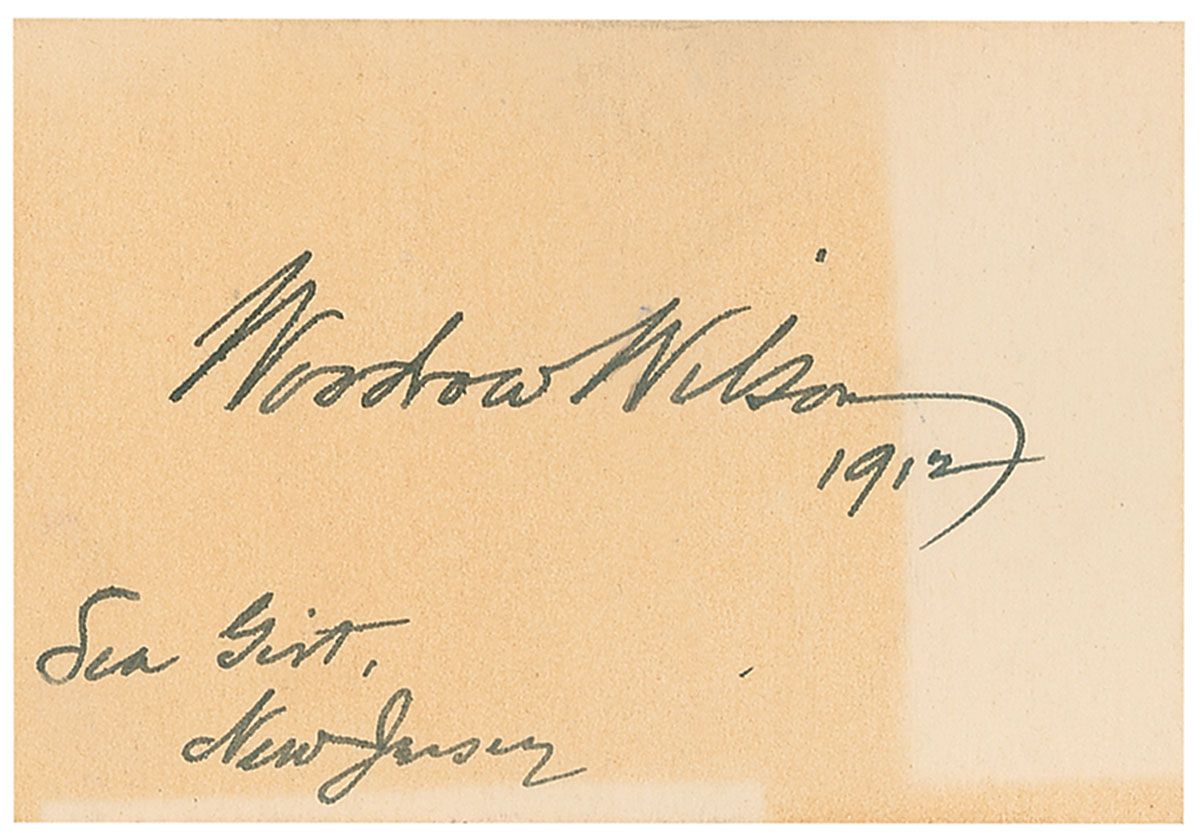 Woodrow Wilson
1912
Sea Girt,
New Jersey